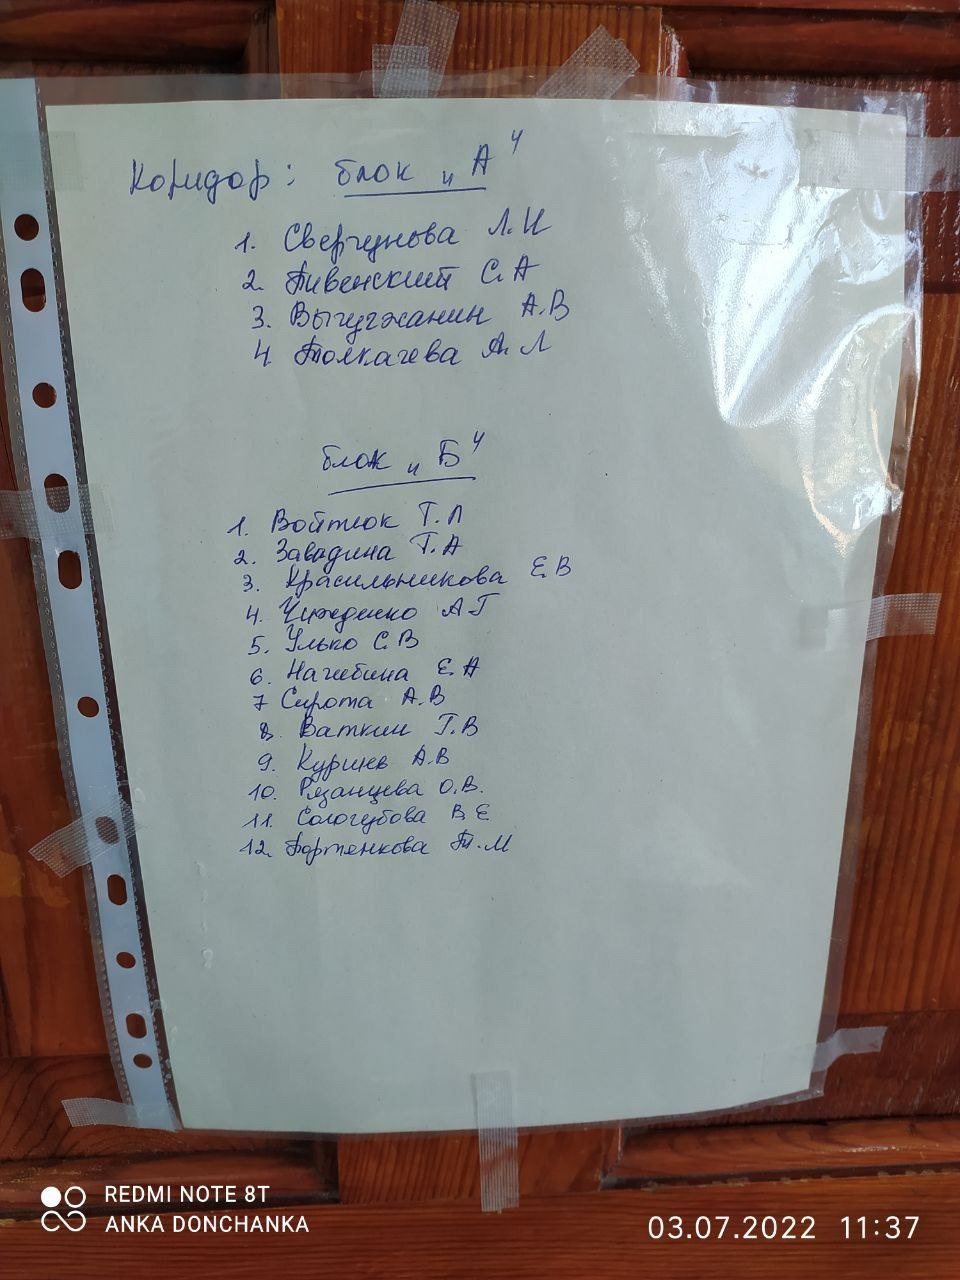 Коридор: блок „А“
1. Свергунова Л.И
2. Пивенский С.А
3. Вычугжанин А.В
4 Толкачева А.Л
блок „Б“
1. Войтюк Т.Л
2. Завадина Т.А
3. Красильникова Е.В
4. А Г
5. Улько С.В
6. Нагибина Е.А
7 Сирота А.В
8. Ваткин Г.В
9. Куринь А.В
10. Рязанцева О.В.
11. Сологубова В Е
12. Портенкова Т.М
REDMI NOTE 8T
ANKA DONCHANKA
03.07.2022 11:37